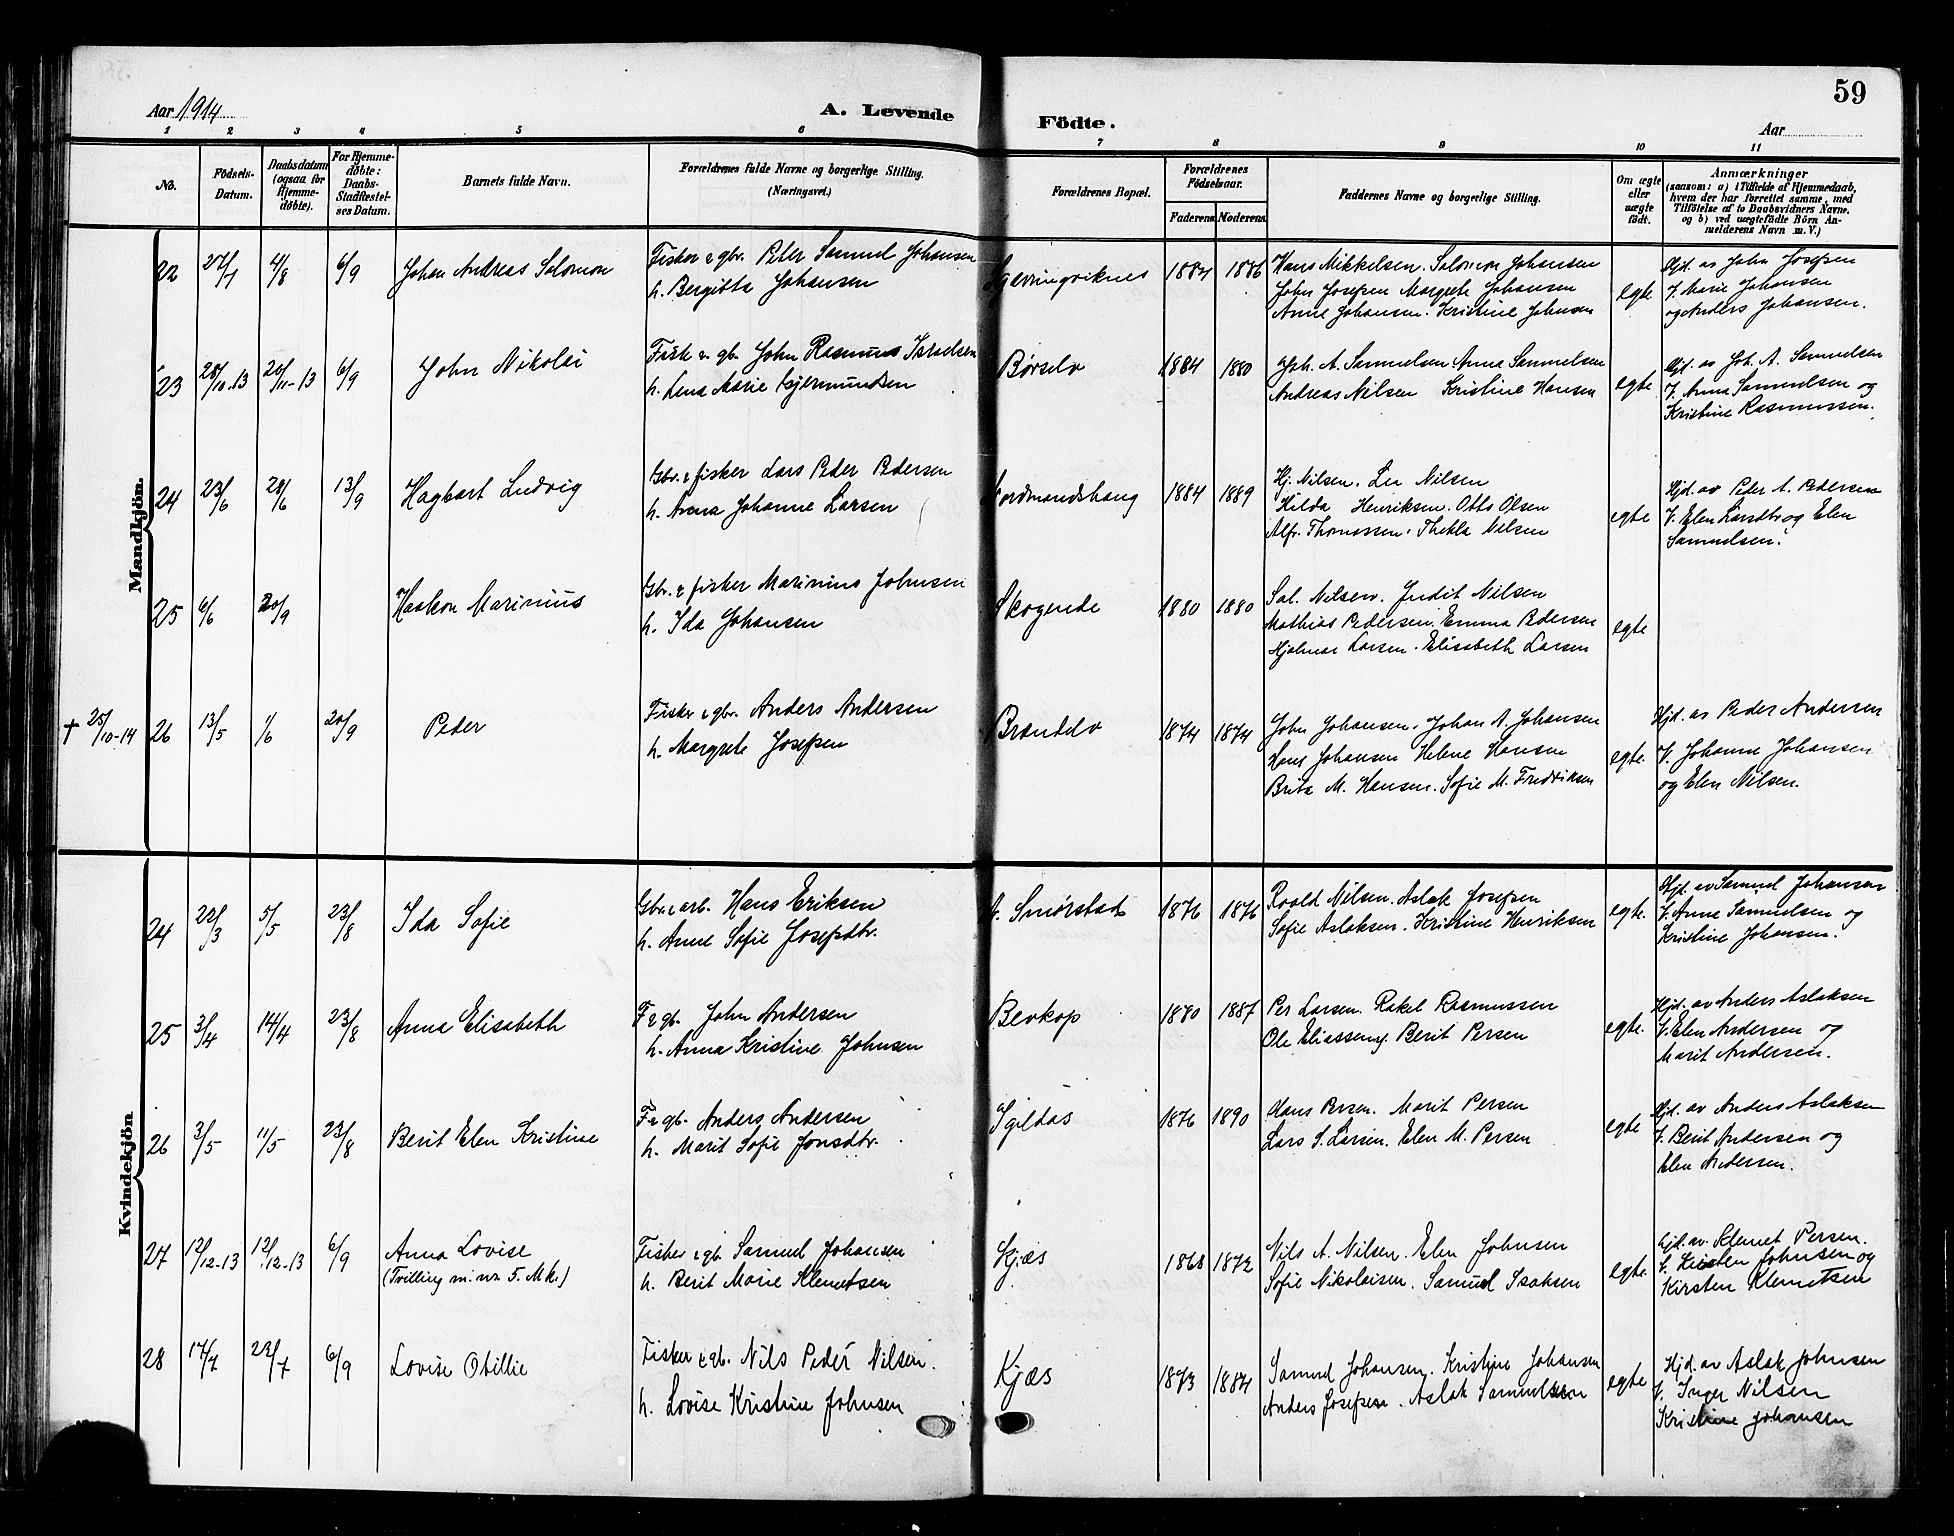 59
Aar 1914
A. Levende
Födte.
Aar
1 2 3 4 5 6 7 8 9 10 11
No.
Födsels-
Datum.
Daabsdatum
(ogsaa for
Hjemme-
döbte).
For Hjemme-
döbte:
Daabs-
Stadfæstel-
ses Datum.
Barnets fulde Navn.
Forældrenes fulde Navne og borgerlige Stilling.
(Næringsvei.)
Forældrenes Bopæl.
Forældrenes
Födselsaar.
Faderens Moderens
Faddernes Navne og borgerlige Stilling.
Om ægte
eller
uægte
födt.
Anmærkninger
(saasom: a) i Tilfælde af Hjemmedaab,
hvem der har forrettet samme, med
Tilföielse af to Daabsvidners Navne,
og b) ved uægtefödte Börn An-
melderens Navn m. V.)
Mandkjön.
22 27/7 4/8 6/9 Johan Andreas Salomon
Fisker & gbr. Peter Samuel Johansen
h. Bergitta Johansen
1884 1876
Hans Mikkelsen. Salomon Johansen
John Josefsen Margrete Johansen
Anne Johansen. Kristine Johnsen
egte
Hjd. av John Josefsen
V. Marie Johansen
og Anders Johansen.
23 28/10-13 20/11-13 6/9 John Nikolai
Fisk & gb. John Rasmus Israelsen
h. Lena Marie Gjermundsen
Børselv 1884 1880
Joh. A. Samuelsen Anna Samuelsen
Andreas Nilsen Kristine Hansen
egte
Hjd. av Joh. A. Samuelsen
V. Anna Samuelsen og
Kristine Rasmussen.
24 23/6 28/6 13/9 Hagbart Ludvig
Gbr. & fisker Lars Peder Pedersen
h. Anna Johanne Larsen
1884 1889
Hj. Nilsen. Lea Nilsen
Hilda Henriksen. Otto Olsen
Alfr. Thomassen. Thekla Nilsen
egte
Hjd. av Peder A. Pedersen
V. Elen Larsdtr og Elen
Samuelsen.
25 6/6 20/9 Haakon Marinius
Gbr. & fisker Marinius Johnsen
h. Ida Johansen
Skogende 1880 1880
Sal. Nilsen. Judit Nilsen
Mathias Pedersen. Emma Pedersen
Hjalmar Larsen. Elisabeth Larsen
egte
† 25/10-14 26 13/5 1/6 20/9 Peder
Fisker & gbr. Anders Andersen
h. Margrete Josefsen
Brændelv 1874 1874
John Johansen. Johan A. Johansen
Hans Johansen Helene Hansen
Brita M. Hansen. Sofie M. Fredriksen
egte.
Hjd. av Peder Andersen
V. Johanne Johansen
og Elen Nilsen.
Kvindekjön
24 22/3 5/5 23/8 Ida Sofie
Gbr. & arb. Hans Eriksen
h. Anne Sofie Josefsdtr.
V. Smørstad 1876 1876
Roald Nilsen. Aslak Josefsen
Sofie Aslaksen. Kristine Henriksen
egte.
Hjd. av Samuel Johansen
V. Anne Samuelsen og
Kristine Johansen.
25 3/4 14/4 23/8 Anna Elisabeth
F & gb. John Andersen
h. Anna Kristine Johnsen
Bevkop 1870 1887
Per Larsen. Rakel Rasmussen
Ole Eliassen. Berit Persen
egte.
Hjd. av Anders Aslaksen
V. Elen Andersen og
Marit Andersen.
26 3/5 11/5 23/8 Berit Elen Kristine
F & gb. Anders Andersen
h. Marit Sofie Jonsdtr.
Igildas 1876 1890
Hans Persen. Marit Persen
Lars S. Larsen. Elen M. Persen
egte
Hjd. av Anders Aslaksen
V. Berit Andersen og
Elen Andersen.
27 12/12-13 12/12-13 6/9 Anna Lovise
(Tvilling m. nr 5. Mk.)
Fisker & gb. Samuel Johansen
h. Berit Marie Klemetsen
Kjæs 1868 1872
Nils A. Nilsen. Elen Johnsen
Sofie Nikolaisen. Samuel Isaksen
egte.
Hjd. av. Klemet Persen.
V. Kirsten Johnsen og
Kirsten Klemetsen
28 17/7 22/7 6/9 Lovise Otillie
Fisker & gb. Nils Peder Nilsen.
h. Lovise Kristine Johnsen
Kjæs 1873 1884
Samuel Johansen. Kristine Johansen
Anders Josefsen. Aslak Samuelsen
egte
Hjd. av Aslak Johnsen
V. Inger Nilsen
Kristine Johansen